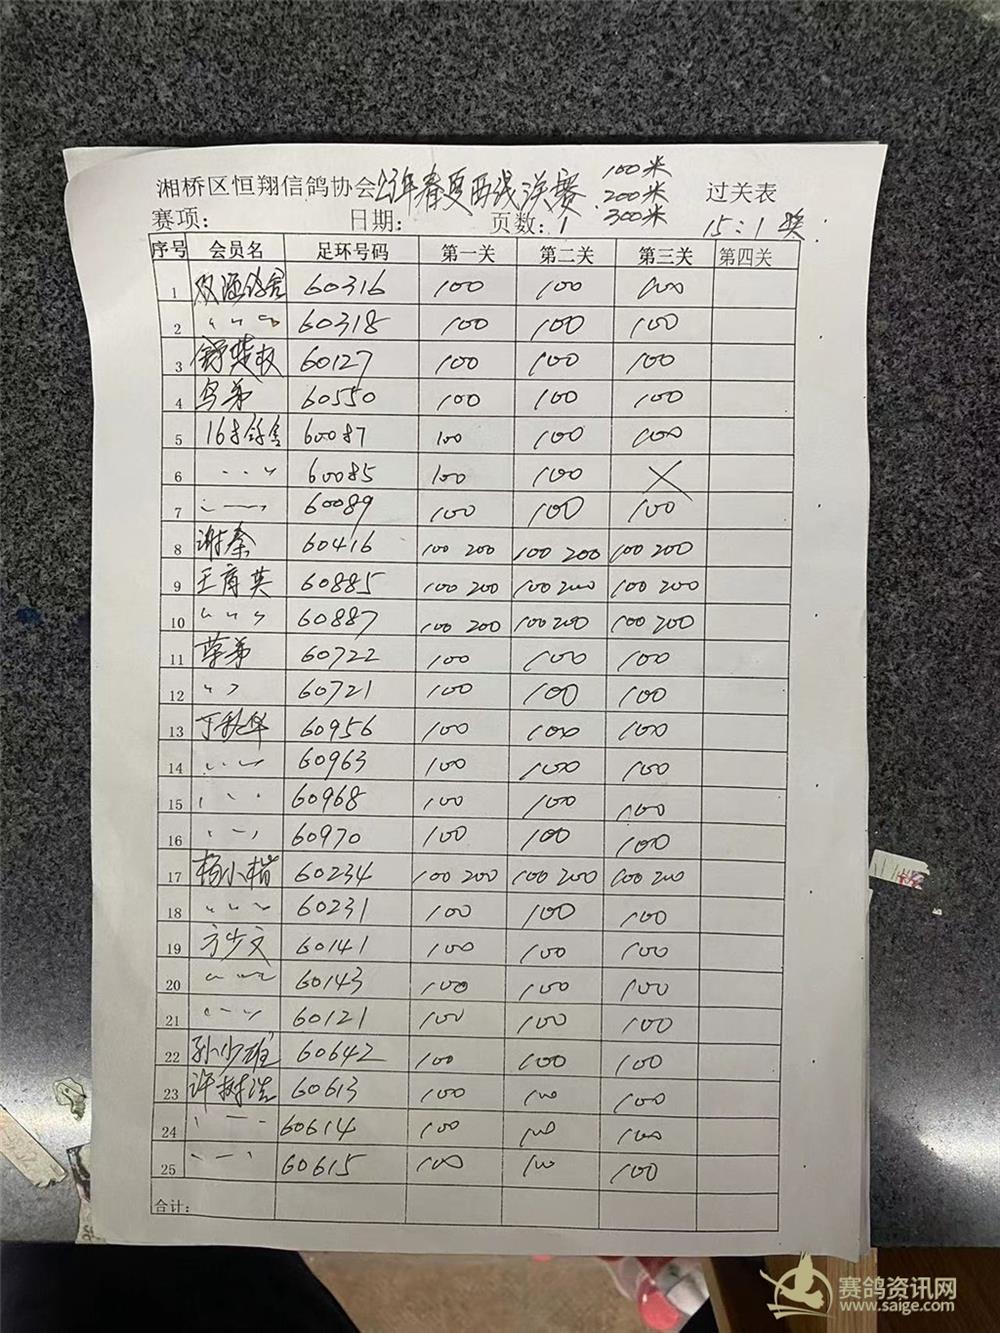 湘桥区恒翔信鸽协会 春夏西线决赛 100米 过关表
200米
300米
赛项: 日期: 页数: 1 15:1奖
序号 会员名 足环号码 第一关 第二关 第三关 第四关
1 双 鸽舍 60316 100 100 100
2 〃 〃 〃 60318 100 100 100
3 60127 100 100 100
4 弟 60550 100 100 100
5 168鸽舍 60087 100 100 100
6 〃 〃 〃 60085 100 100 ×
7 〃 〃 〃 60089 100 100 100
8 谢秦 60416 100 200 100 200 100 200
9 王育英 60885 100 200 100 200 100 200
10 〃 〃 〃 60887 100 200 100 200 100 200
11 弟 60722 100 100 100
12 〃 〃 60721 100 100 100
13 丁 华 60956 100 100 100
14 〃 〃 〃 60963 100 100 100
15 〃 〃 〃 60968 100 100 100
16 〃 〃 〃 60970 100 100 100
17 杨小楷 60234 100 200 100 200 100 200
18 〃 〃 〃 60231 100 100 100
19 方少文 60141 100 100 100
20 〃 〃 〃 60143 100 100 100
21 〃 〃 〃 60121 100 100 100
22 孙少雄 60642 100 100 100
23 许树浩 60613 100 100 100
24 〃 〃 〃 60614 100 100 100
25 〃 〃 〃 60615 100 100 100
合计:
赛鸽资讯网
www.saige.com